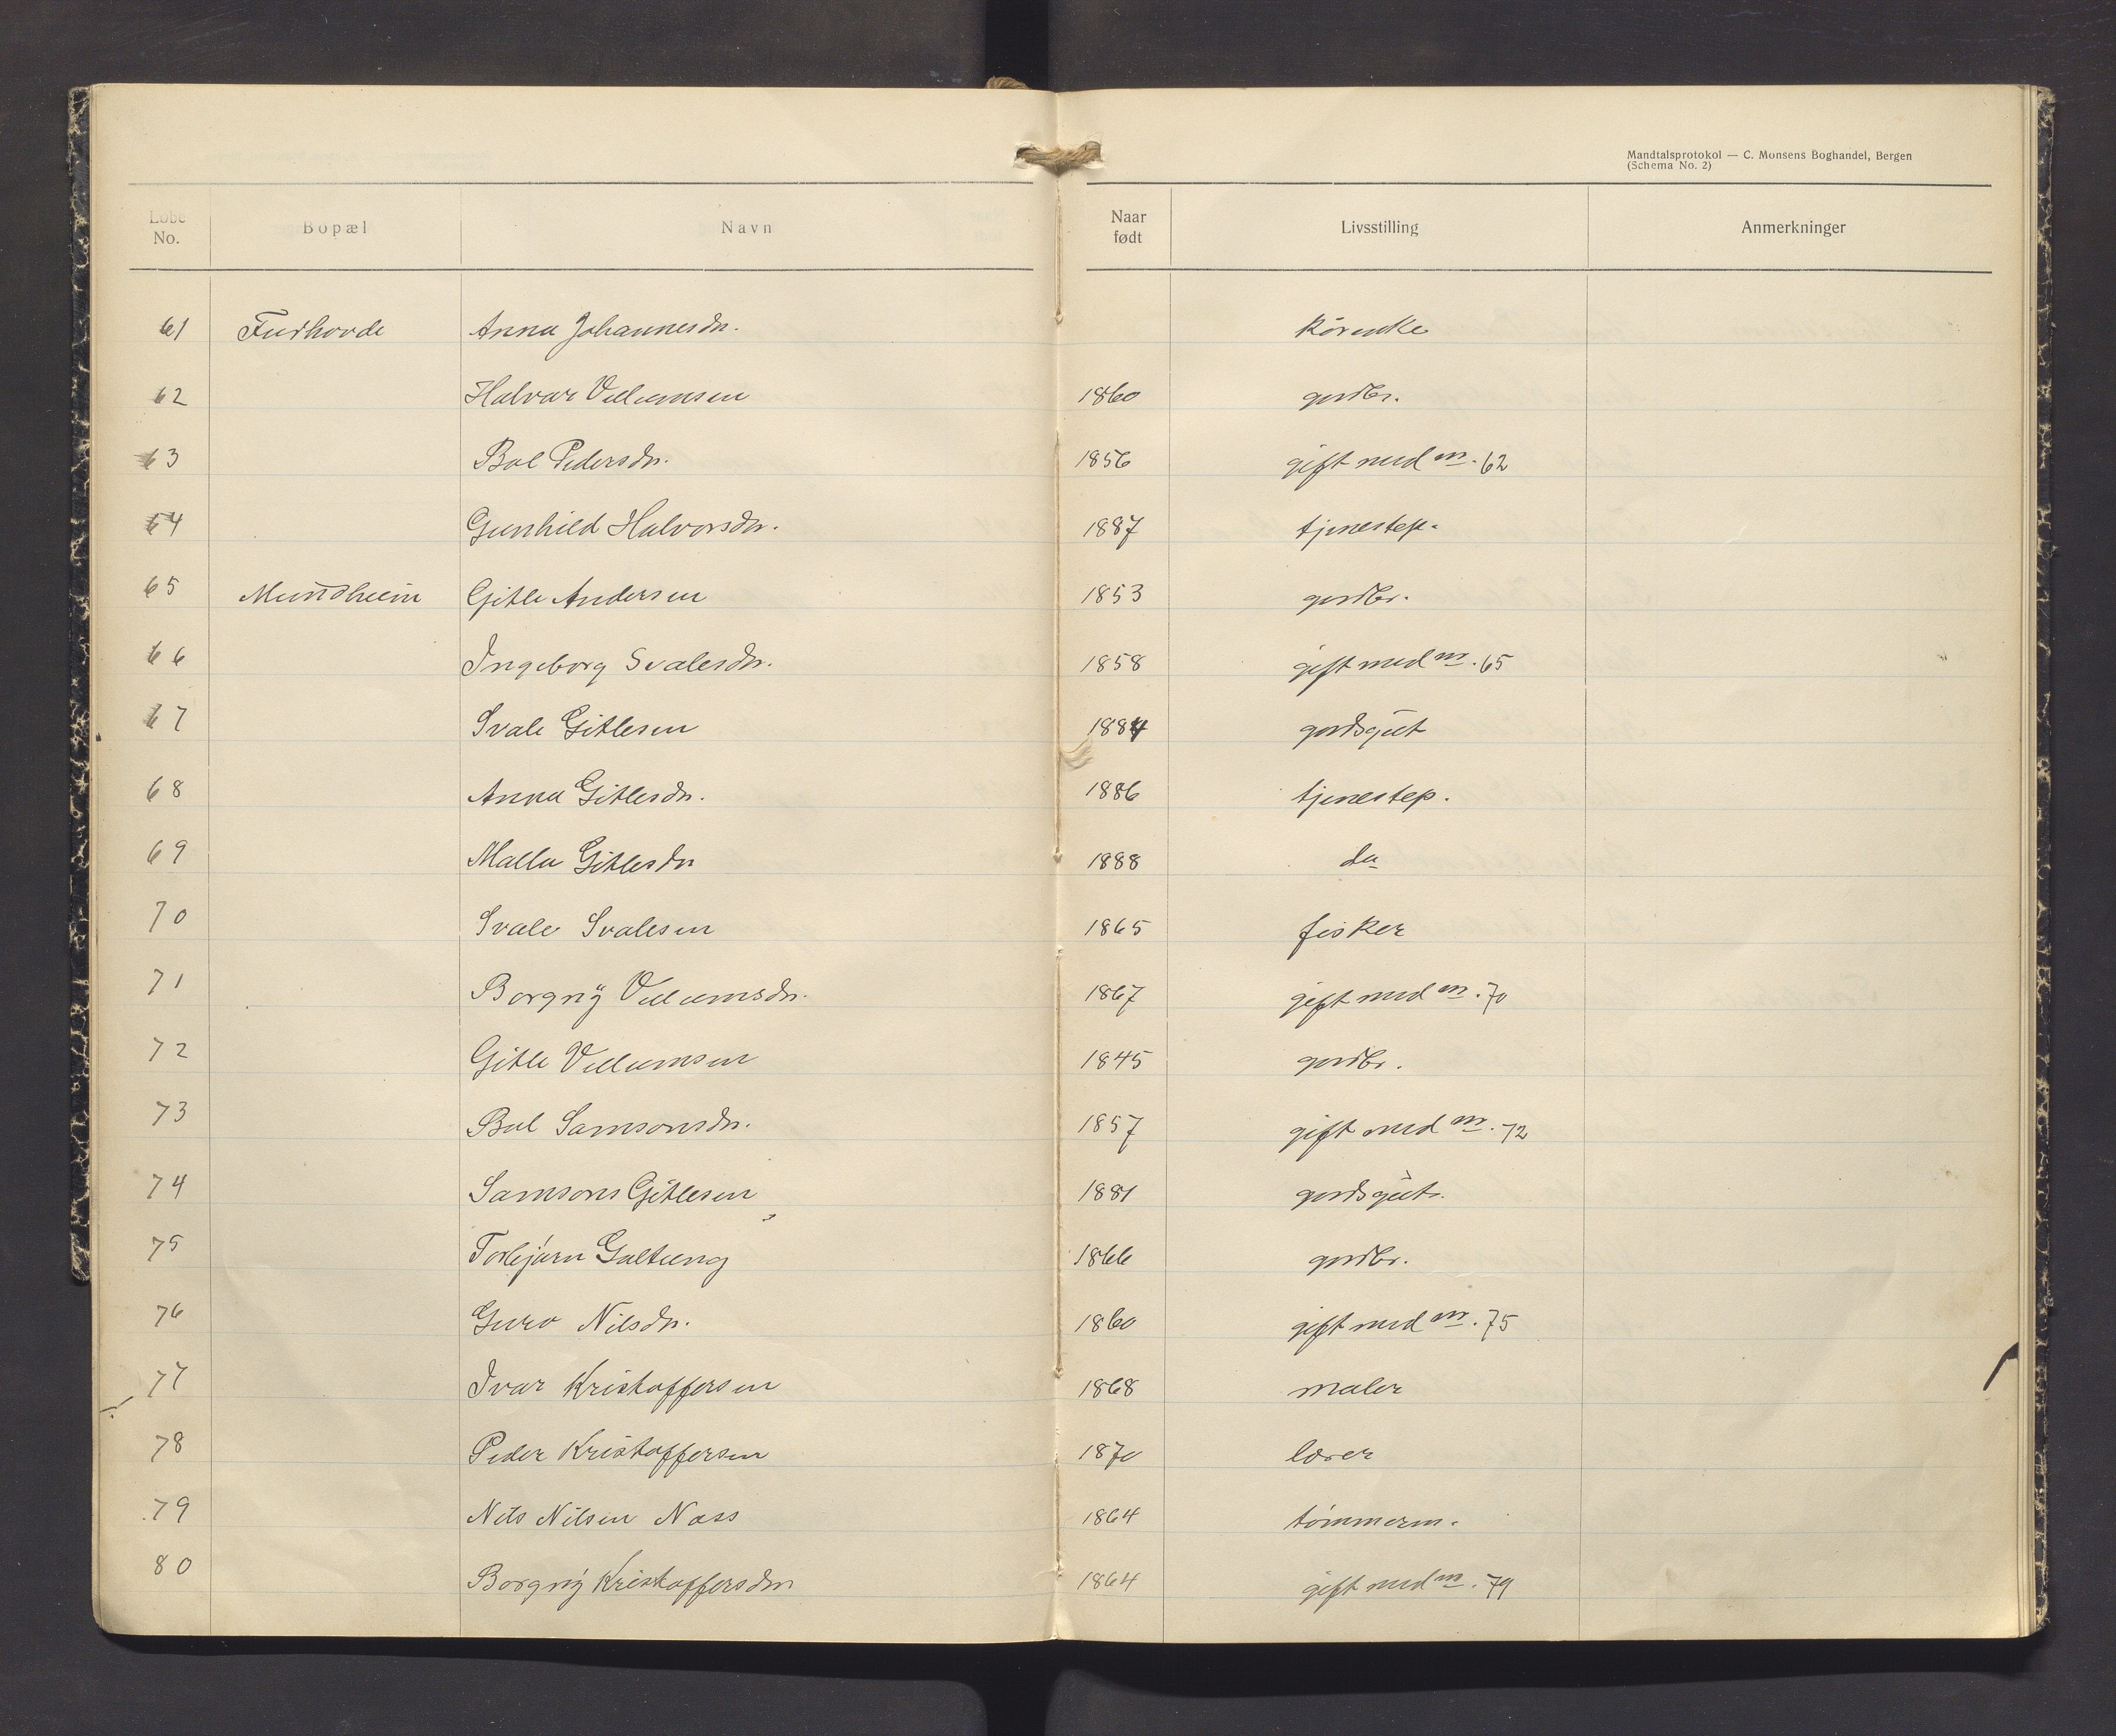 Mandtalsprotokol — C. Monsens Boghandel, Bergen
(Schema No. 2)
Løbe No. Bopæl Navn Naar født Livsstilling Anmerkninger
61 Furhovde Anna Johannesdr. kårenke
62 Halvar Villumsen 1860 gardbr.
63 Bol Pedersdr. 1856 gift med nr. 62
64 Gunhild Halvorsdr. 1887 tjenestep.
65 Mundheim Gitle Andersen 1853 gardbr.
66 Ingeborg Svalesdr. 1858 gift med nr. 65
67 Svale Gitlesen 1884 gardsgut
68 Anna Gitlesdr. 1886 tjenestep.
69 Malla Gitlesdr 1888 do
70 Svale Svalesen 1865 fisker
71 Borgny Villumsdr. 1867 gift med nr. 70
72 Gitle Villumsen 1845 gardbr.
73 Bol Samsonsdr. 1857 gift med nr. 72
74 Samson Gitlesen 1881 gardsgut.
75 Torbjørn Galtung 1866 gardbr.
76 Guro Nilsdr. 1860 gift med nr. 75
77 Ivar Kristoffersen 1868 maler
78 Peder Kristoffersen 1870 lærer
79 Nils Nilsen Næss 1864 tømmerm.
80 Borgny Kristoffersdr 1864 gift med nr. 79